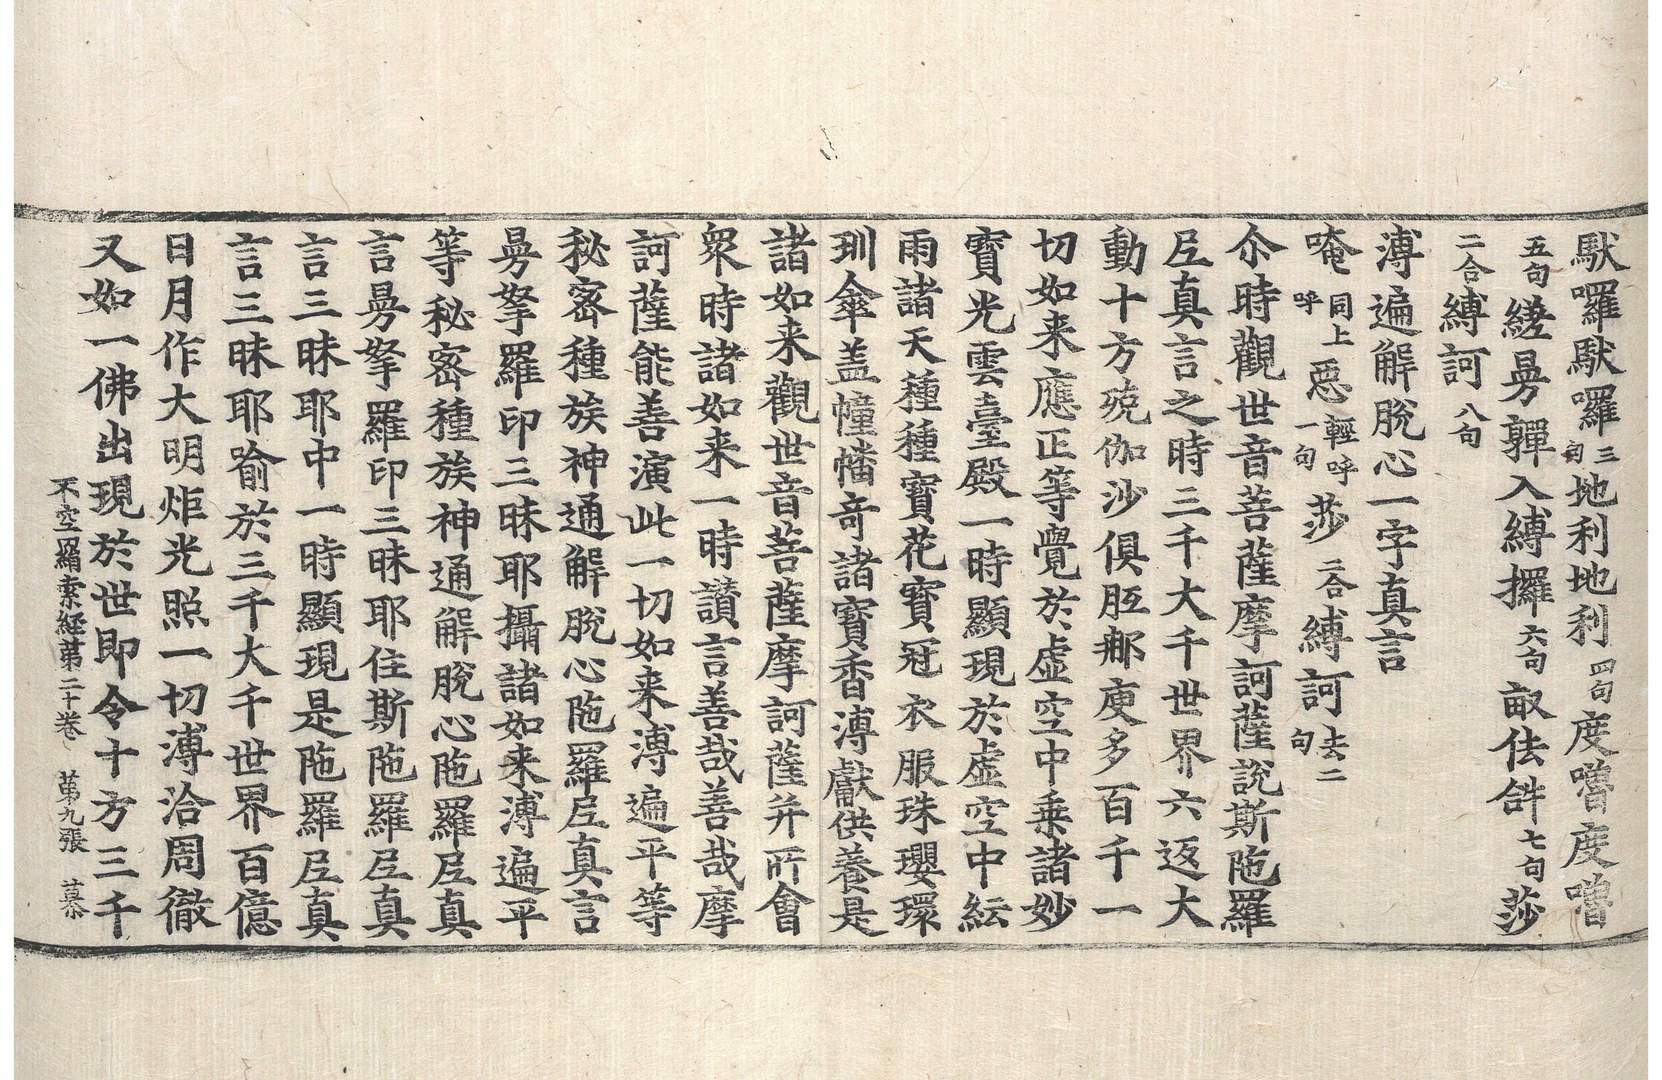 馱囉馱囉三句地利地利四句度嚕度嚕
五句縒曼嚲入縛攞六句畝佉斜七句莎
二合縛訶八句
溥遍解脫心一字真言
唵同上呼惡輕呼一句莎二合縛訶去二句
尒時觀世音菩薩摩訶薩說斯陁羅
尼真言之時三千大千世界六返大
動十方殑伽沙俱胝那庾多百千一
切如来應正等覺於虛空中乗諸妙
寶光雲臺殿一時顯現於虛空中紜
雨諸天種種寶花寶冠衣服珠瓔環
玔傘盖幢幡奇諸寶香溥獻供養是
諸如来觀世音菩薩摩訶薩并所會
衆時諸如来一時讃言善哉善哉摩
訶薩能善演此一切如来溥遍平等
秘密種族神通解脫心陁羅尼真言
曼拏羅印三昧耶攝諸如来溥遍平
等秘密種族神通解脫心陁羅尼真
言曼拏羅印三昧耶住斯陁羅尼真
言三昧耶中一時顯現是陁羅尼真
言三昧耶喻於三千大千世界百億
日月作大明炬光照一切溥洽周徹
又如一佛出現於世即令十方三千
不空羂索経苐二十卷 苐九張 慕